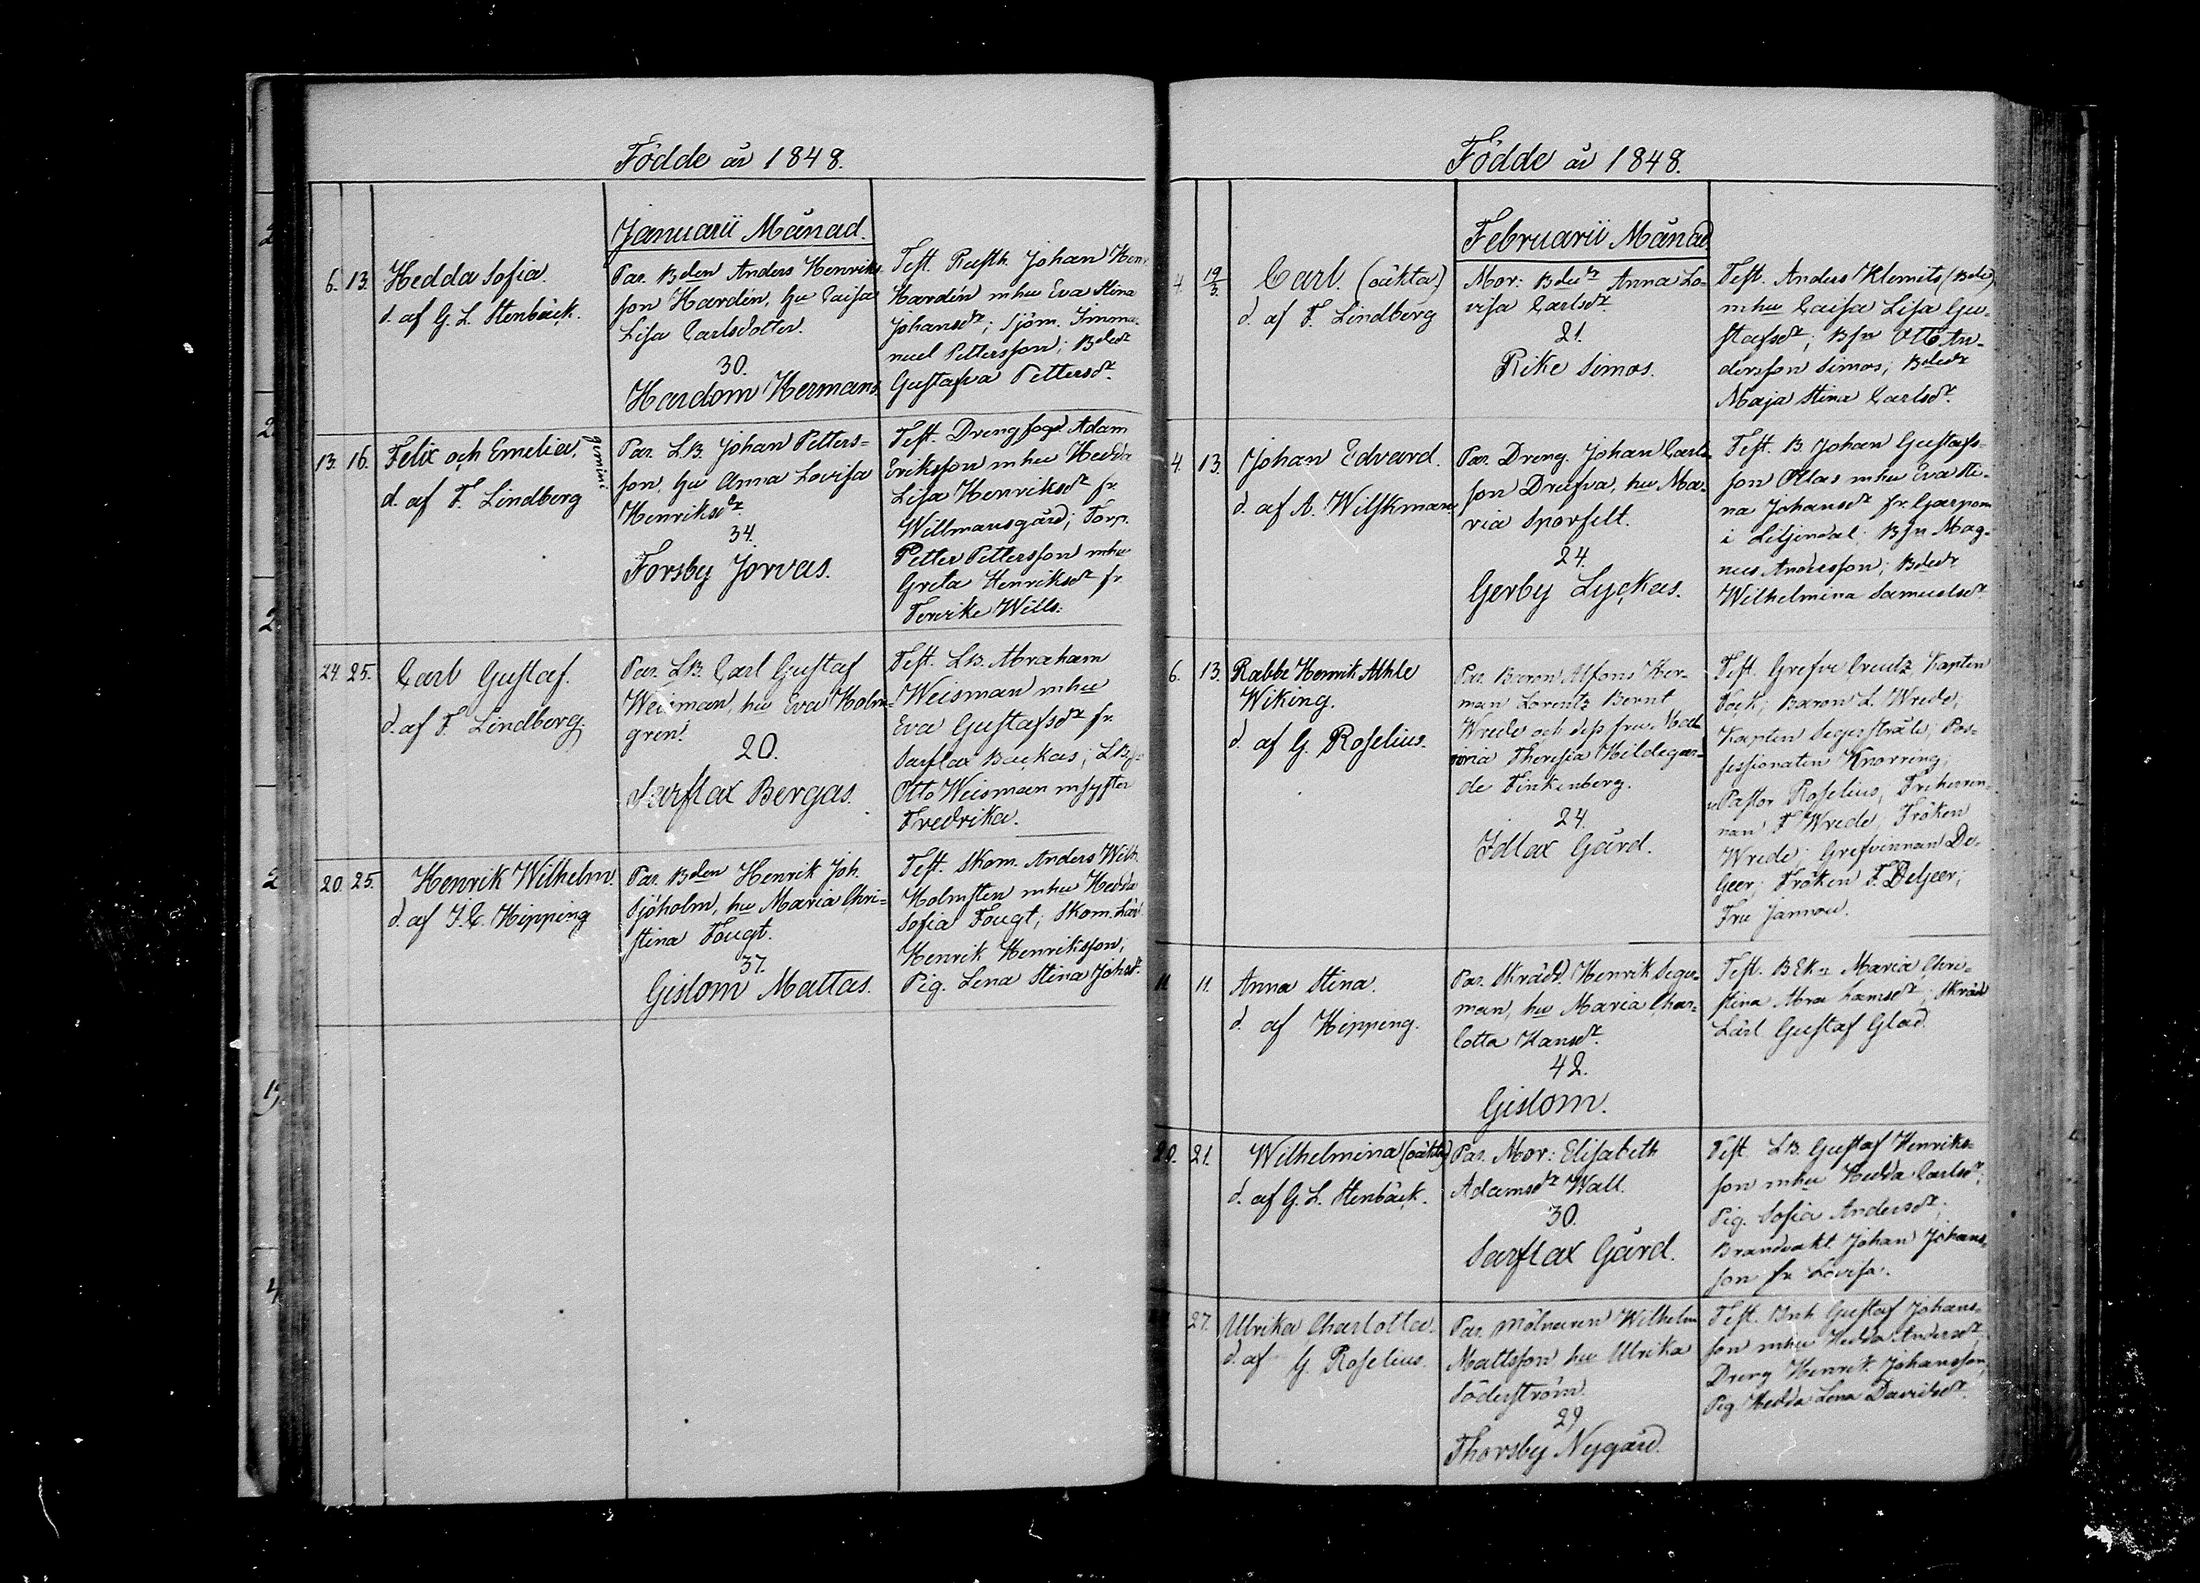 Födde år 1848.
Januarii Månad.
6. 13. Hedda Sofia.
d. af G. L. Stenbäck.
Par. Bden Anders Henriks-
son Hardén, hu Caisa
Lisa Carlsdotter.
30.
Hardom Hermans.
Test. Rusth. Johan Henr.
Hardén mhu Eva Stina
Johansdr; Sjöm. Imma-
nuel Pettersson; Bdedr
Gustafva Pettersdr.
13. 16. Felix och Emelia, gemini
d. af F. Lindberg
Par. LB. Johan Petters-
son, hu Anna Lovisa
Henriksdr
34.
Forsby Jorvas.
Test. Drengfogd Adam
Eriksson mhu Hedda
Lisa Henriksdr fr
Willmansgård; Torp.
Petter Pettersson mhu
Greta Henriksdr fr
Tervike Wills.
24. 25. Carl Gustaf.
d. af F. Lindberg.
Par. LB. Carl Gustaf
Weisman, hu Eva Holm-
gren.
20.
Sarflax Bergas.
Test. LB. Abraham
Weisman mhu
Eva Gustafsdr fr.
Sarflax Backas;
Otto Weisman msyster
Fredrika.
20. 25. Henrik Wilhelm.
d. af F. C. Hipping
Par. Bden Henrik Joh.
Sjöholm, hu Maria Chri-
stina Fougt.
37.
Gislom Mattas.
Test. Skom. Anders Wilh.
Holmsten mhu Hedda
Sofia Fougt; Skom. Lärl
Henrik Henriksson,
Pig. Lena Stina Johsdr.
Födde år 1848.
Februarii Månad
4. 19/3. Carl. (oäkta)
d. af F. Lindberg
Mor: Bdedr Anna Lo-
visa Carlsdr.
21.
Rike Simos.
Test. Anders Klemets (Bde)
mhu Caisa Lisa Gu-
stafsdr; Bsn Otto An-
dersson Simos; Bdedr
Maja Stina Carlsdr.
4. 13. Johan Edvard.
d. af A. Wilskman.
Par. Dreng. Johan Carls-
son Drufva, hu Ma-
ria Sporfelt.
24.
Gerby Lyckas.
Test. B. Johan Gustafs-
son Ollas mhu Eva Sti-
na Johansdr fr. Garpom
i Liljendal; Bsn Mag-
nus Andersson; Bdedr
Wilhelmina Samuelsdr.
6. 13. Rabbe Henrik Athle
Wiking.
d. af G. Roselius.
Par. Baron Alfons Her-
man Lorentz Bernt
Wrede och dess fru
Theresia Hildegar-
de Finkenberg.
24.
Idlax Gård.
Test. Grefve Creutz, Kapten
Fock; Baron L. Wrede;
Kapten Segerstråle; Pos-
sessionaten Knorring;
Pastor Roselius, Friherrin-
nan F. Wrede, Fröken
Wrede; Grefvinnan De-
Geer; Fröken F. DeGeer;
Fru Jannou.
11. 11. Anna Stina.
d. af Hipping.
Par. Skrädd. Henrik Seger-
man, hu Maria Char-
lotta Hansdr.
42.
Gislom.
Test. BEka Maria Chri-
stina Abrahamsdr; Skräd
Lärl Gustaf Glad.
20. 21. Wilhelmina (oäkta)
d. af G. L. Stenbäck.
Par. Mor: Elisabeth
Adamsdr Wall.
30.
Sarflax Gård.
Test. LB. Gustaf Henriks-
son mhu Hedda Carlsdr;
Pig. Sofia Andersdr;
Brandvakt Johan Johans-
son fr. Lovisa.
27. Ulrika Charlotta.
d. af G. Roselius.
Par. Mölnaren Wilhelm
Mattsson, hu Ulrika
Söderström.
29
Thorsby Nygård.
Test. Inh. Gustaf Johans-
son mhu Hedda Andersdr;
Dreng Henrik Johansson,
Pig. Hedda Lena Davidsdr.